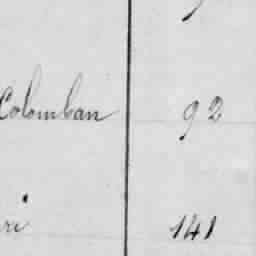 Colomban 92
ri 141